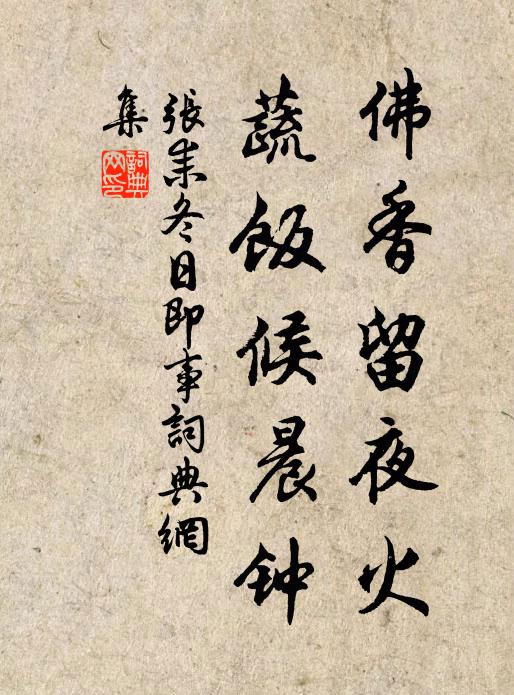 佛香留夜火
蔬飯候晨钟
張耒冬日即事詞典網
集
詞典
网印